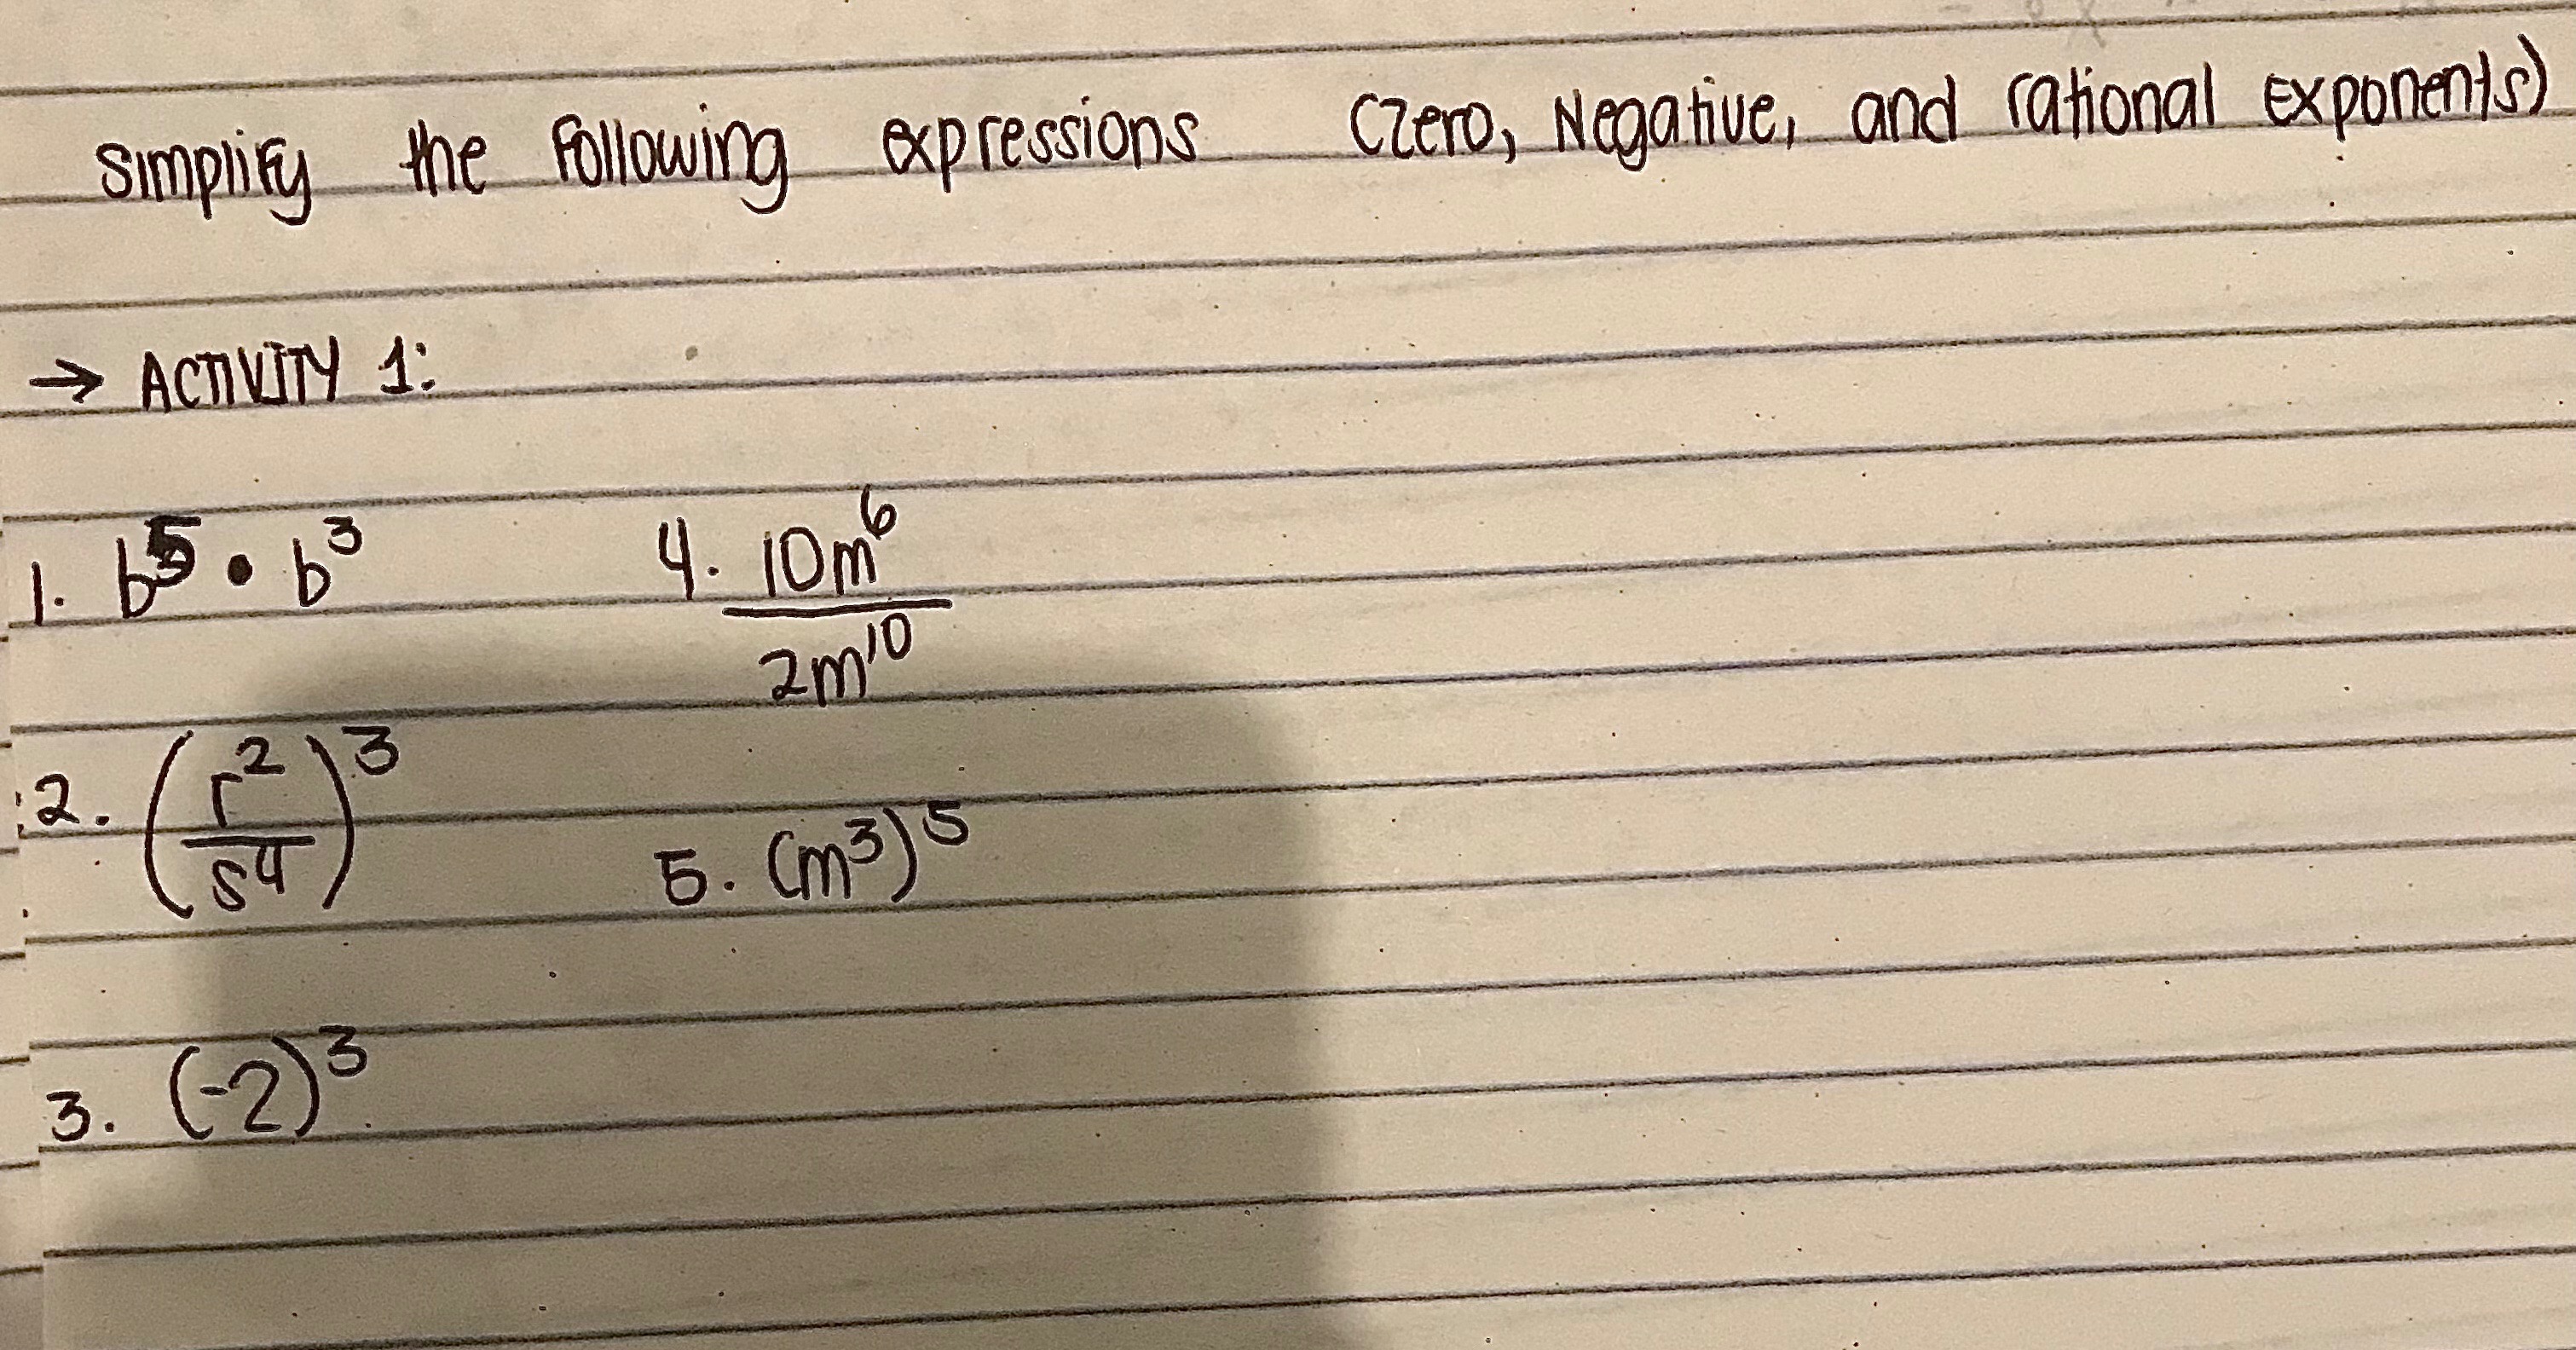 Simplify the following expressions (Zero, Negative, and rational Exponents)
→ ACTIVITY 1:
1. b⁵ • b³
2. (r²/s⁴)³
3. (-2)³
4. 10m⁶/2m¹⁰
5. (m³)⁵